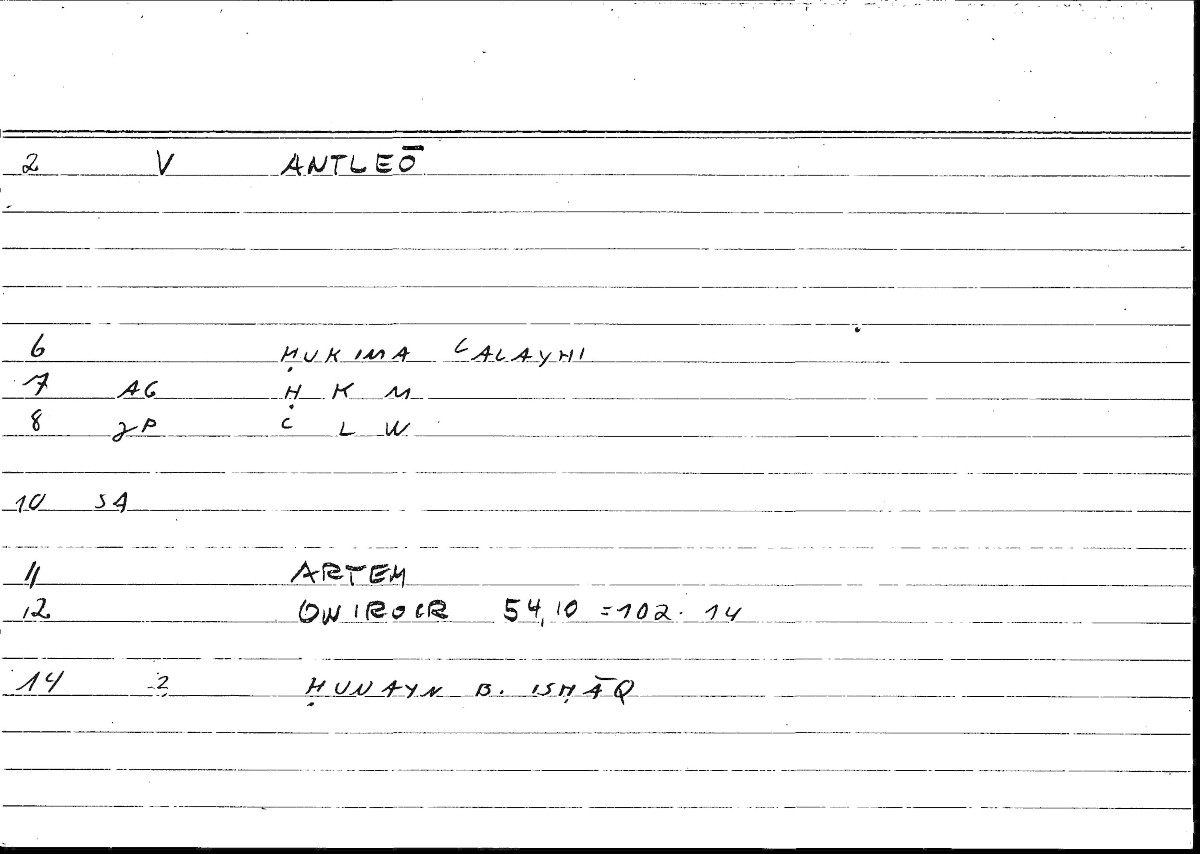 2 V ANTLEŌ
6 ḤUKIMA ʿALAYHI
7 AG Ḥ K M
8 JP ʿ L W
10 SA
11 ARTEM
12 ONIROCR 54,10 =102. 14
14 2 ḤUNAYN B. ISḤĀQ